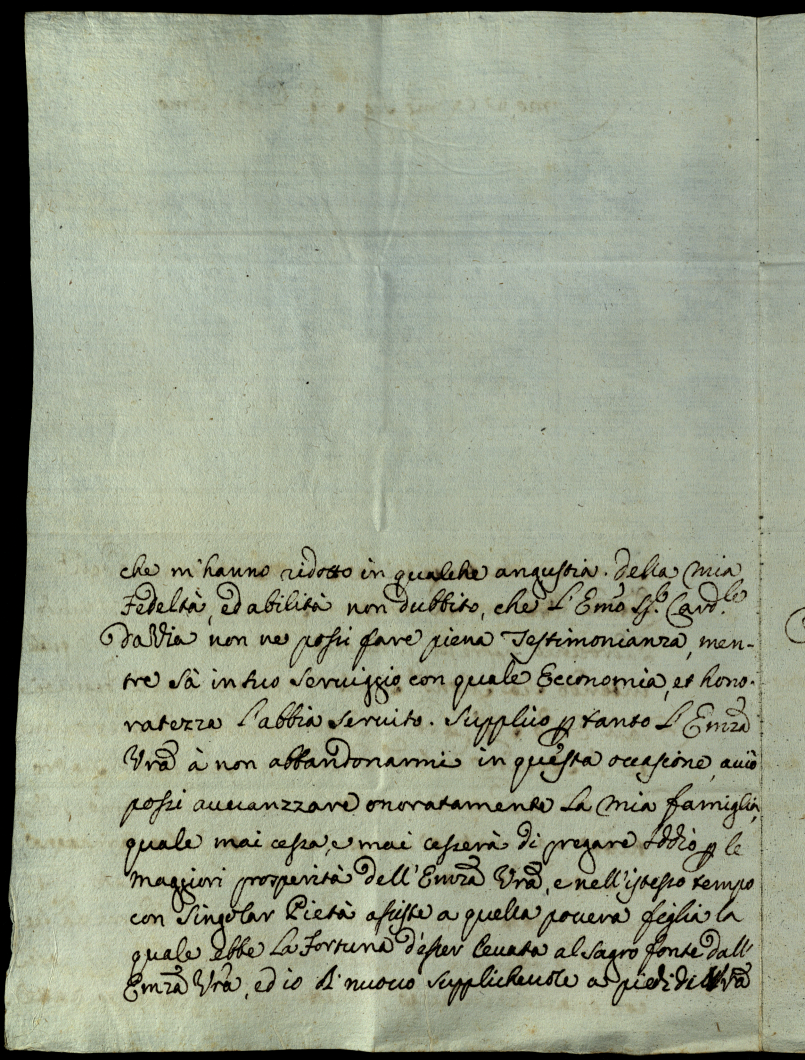 che m'hanno ridotto in qualche angustia. della mia
Fedeltà, ed abilità non dubbito, che L'Emo Sr. Card.le
Davia non ne possi fare piena Testimonianza, men-
tre sà in suo serviggio con quale Economia, et hono-
ratezza L'abbia servito. Supplico p tanto L'Emza
Vra à non abbandonarmi in questa occasione, acciò
possi avvanzzare onoratamente La mia famiglia,
quale mai cessa, e mai cesserà di pregare Iddio p le
maggiori prosperità dell'Emza Vra, e nell'istesso tempo
con singolar Pietà assiste a quella povera figlia la
quale ebbe La Fortuna d'esser levata al sagro fonte dall'
Emza Vra, ed io di nuovo supplichevole a piedi di Vra